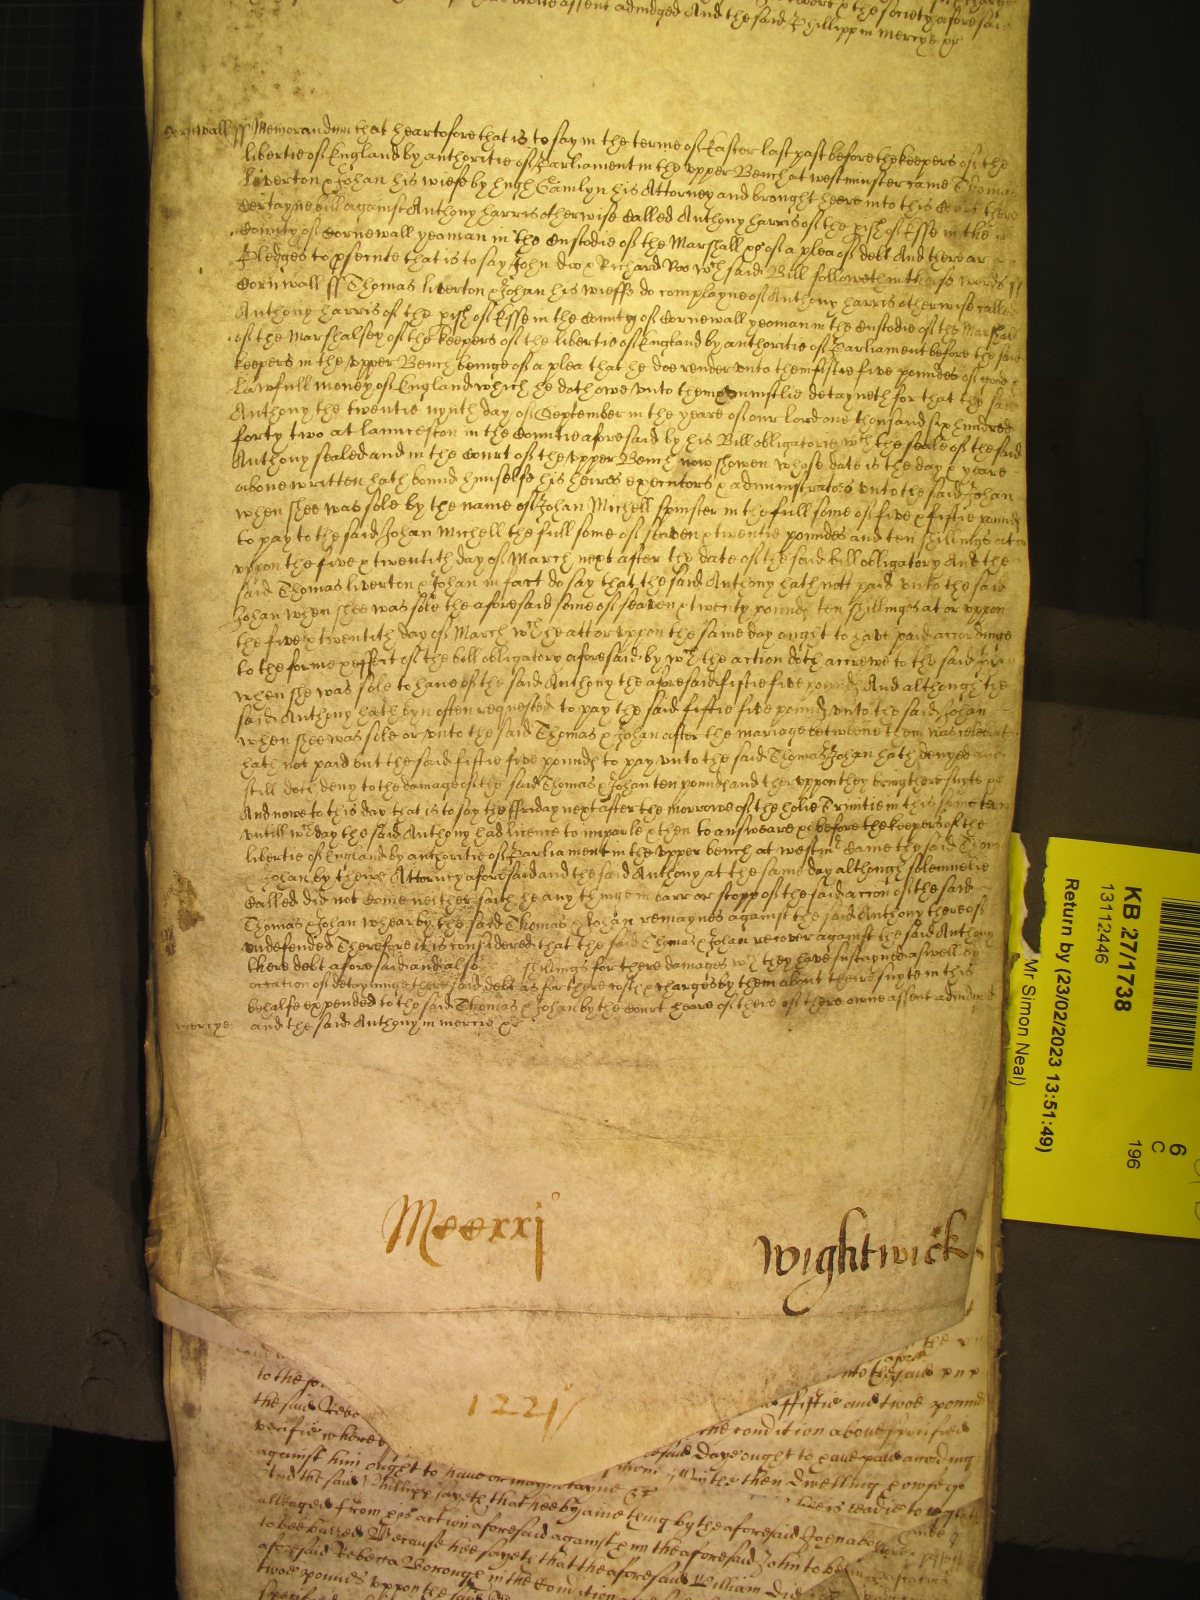 owne assent adiudged And the said Phillipp in Mercye &c
Cornwall ss Memorandum that heartofore that is to say in the terme of Easter last past before the keepers of the
libertie of England by authoritie of Parliament in the vpper Bench at westminster came Thomas
Liverton & Johan his wiefe by Hugh Gamlyn his Attorney and brought heere into this Court there
Certayne bill against Anthony harris otherwise called Anthony harris of the pish of Esse in the
County of Cornewall yeoman in the Custodie of the Marshall &c of a plea of debt And there are
Pledges to psecute that is to say John doo & Richard Roo wch said Bill followeth in these words ss
Cornwall ss Thomas Liverton & Johan his wieffe do complayne of Anthony harris otherwise called
Anthony harris of the pish of Esse in the County of Cornewall yeoman in the Custodie of the Marshall
of the Marshalsey of the keepers of the libertie of England by authoritie of Parliament before the said
keepers in the vpper Bench beinge of a plea that he doe render vnto them fiftie five poundes of good
Lawfull money of England which he doth owe vnto them & iniustlie detayneth for that the said
Anthony the twentie nynth day of September in the yeare of our lord one thousand six hundred
forty two at Lanuceston in the Countie aforesaid by his Bill obligatorie wth the seale of the said
Anthony sealed and in the Court of the vpper Bench now showen whose date is the day & yeare
above written hath bound himselfe his heires executors & administrators vnto the said Johan
when shee was sole by the name of Johan Michell spinster in the full some of five & fiftie pounds
to pay to the said Johan Michell the full some of seaven & twentie poundes and ten shillings at or
vppon the five & twentith day of March next after the date of the said bill obligatory And the
said Thomas Liverton & Johan in fact do say that the said Anthony hath nott paid vnto the said
Johan when shee was sole the aforesaid some of seaven & twenty pounds ten shillings at or vppon
the five & twentith day of March wch he att or vppon the same day ought to have paid accordinge
to the forme & effect of the bill obligatory aforesaid by wch the action doth accrewe to the said Johan
when shee was sole to have of the said Anthony the aforesaid fiftie five pounds And although the
said Anthony hath byn often requested to pay the said fiftie five pounds vnto the said Johan
when shee was sole or vnto the said Thomas & Johan after the mariage betweene them was celebrated
hath not paid but the said fiftie five pounds to pay vnto the said Thomas & Johan hath denyed and
still doth deny to the damage of the said Thomas & Johan ten pounds and thervppon they bring there suyte &c
And nowe to this day that is to say the ffriday next after the morrowe of the holie Trinitie in this same terme
vntill wch day the said Anthony had licence to imparle & then to answeare &c before the keepers of the
libertie of England by authoritie of Parliament in the vpper bench at westmr Came the said Thomas
& Johan by their Attorney aforesaid and the said Anthony at the same day although solemnelie
Called did not Come neither saith he any thinge in barr or stopp of the said accon of the said
Thomas & Johan whearby the said Thomas & Johan remaynes against the said Anthony thereof
vndefended Therefore it is considered that the said Thomas & Johan recover against the said Anthony
there debt aforesaid and also shillings for there damages wch they have susteyned aswell by
occation of detayninge there said debt as for there costs & charges by them about theire suyte in this
behalfe expended to the said Thomas & Johan by the Court heare of there of there owne assent adiudged
mercye and the said Anthony in mercie &c
Mccxxj
Wightwick
1221
into the said
to the
ffiftie and twoe pound
the said Rebe
the condition above specified
verifie where
said Daye ought to have paid according
against him ought to have or maynetayne &c
then dwelling howse
And the said Phillipp sayeth that hee by aine thing by the aforesaid John above
hee is readie to
alleaged from his action aforesaid against him the aforesaid John to
to bee barred Because hee sayeth that the aforesaid William
aforesaid Rebecca Bonough in the Condition
twoe pounds vppon the said
KB 27/1738
13112446
Return by (23/02/2023 13:51:49)
Mr Simon Neal)
6
C
196